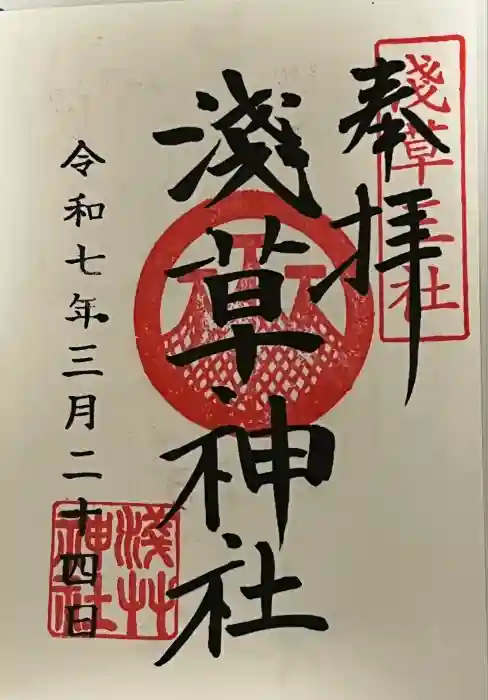 奉拝
淺草三社
淺草神社
令和七年三月二十四日
淺草神社